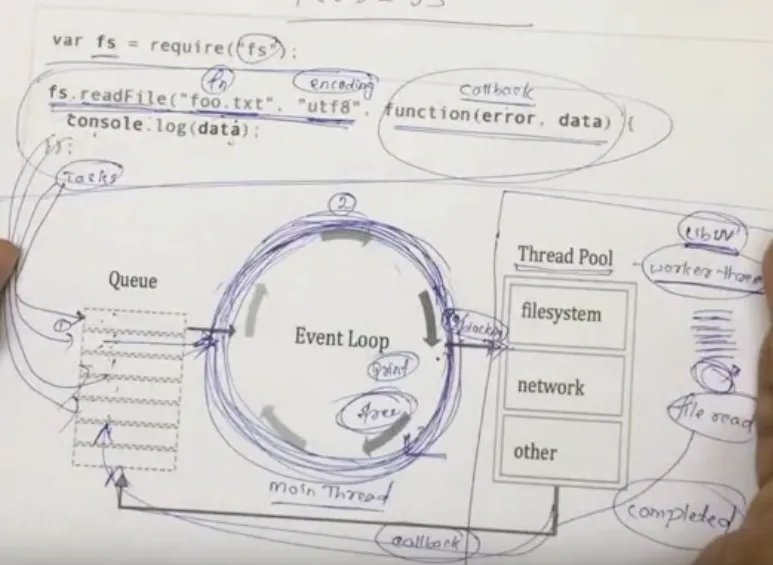 var fs = require("fs");
fn encoding callback
fs.readFile("foo.txt", "utf8", function(error, data) {
console.log(data);
});
Tasks
2
libuv
Queue
Thread Pool
worker-thre
1
filesystem
Event Loop
print
network
free
file read
other
main Thread
completed
callback